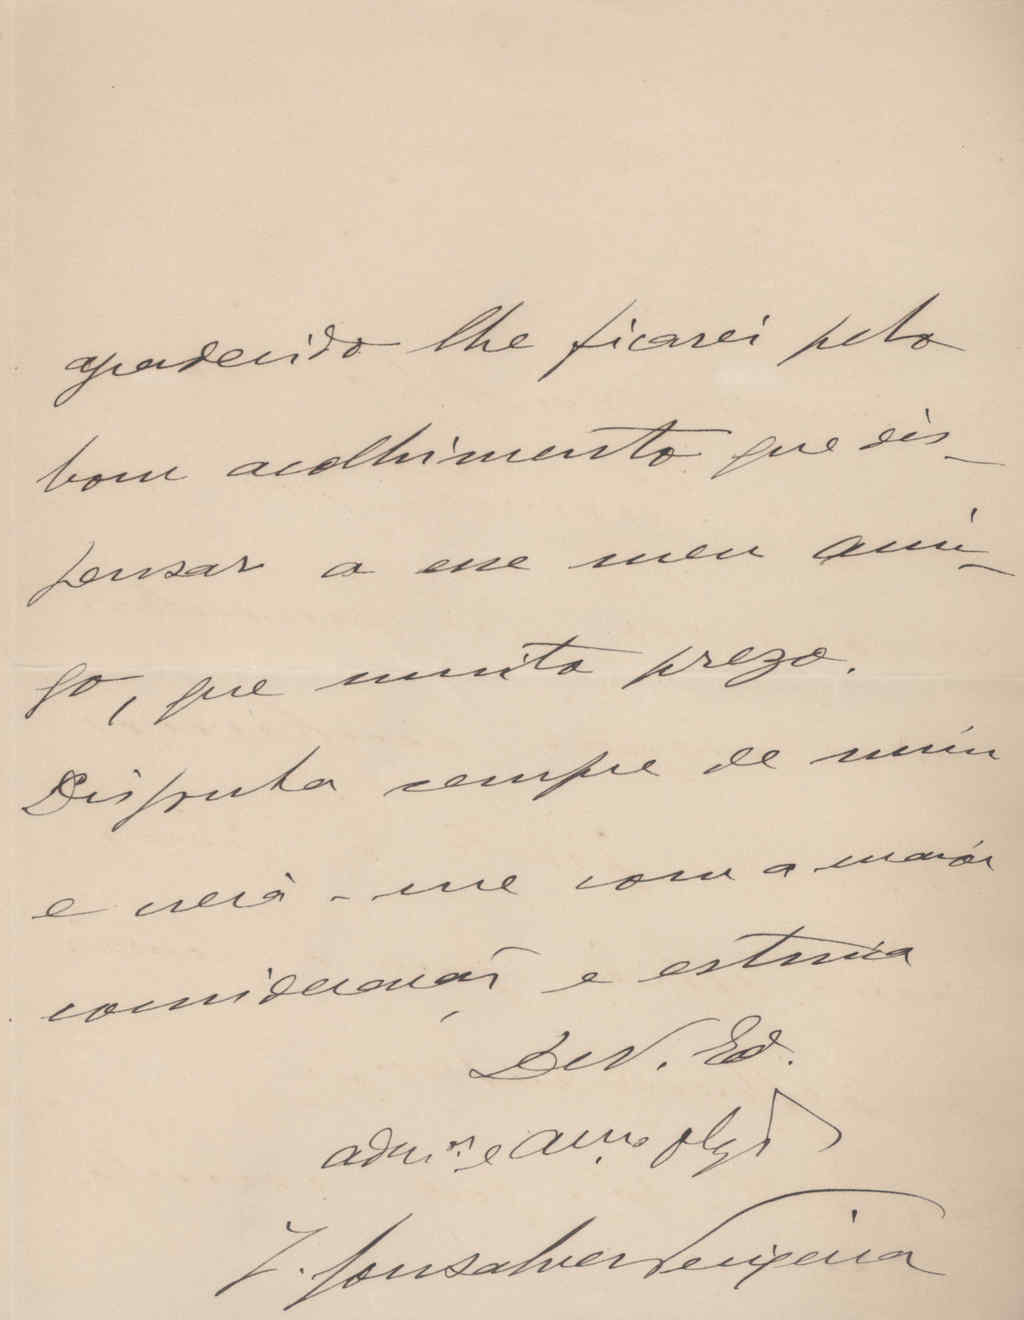 agradecido lhe ficarei pelo
bom acolhimento que dis-
pensar a esse meu ami-
go, que muito prezo.
Disponha sempre de mim
e creia-me com a maior
consideração e estima
De V. Ex.
adm.or e am.o obg.do
J. Gonsalves Teixeira